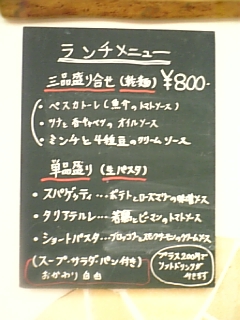 ランチメニュー
三品盛り合せ(乾麺) ¥800-
・ペスカトーレ(魚介のトマトソース)
・ツナとキャベツのオイルソース
・ミンチと4種豆のクリームソース
単品盛り(生パスタ)
・スパゲッティ…ポテトとローズマリーの味噌ソース
・タリアテルレ…若鶏とピーマンのトマトソース
・ショートパスタ…ブロッコリーと クリームソース
(スープ・サラダ・パン付き)
おかわり自由
プラス200円で
ソフトドリンク
付きます